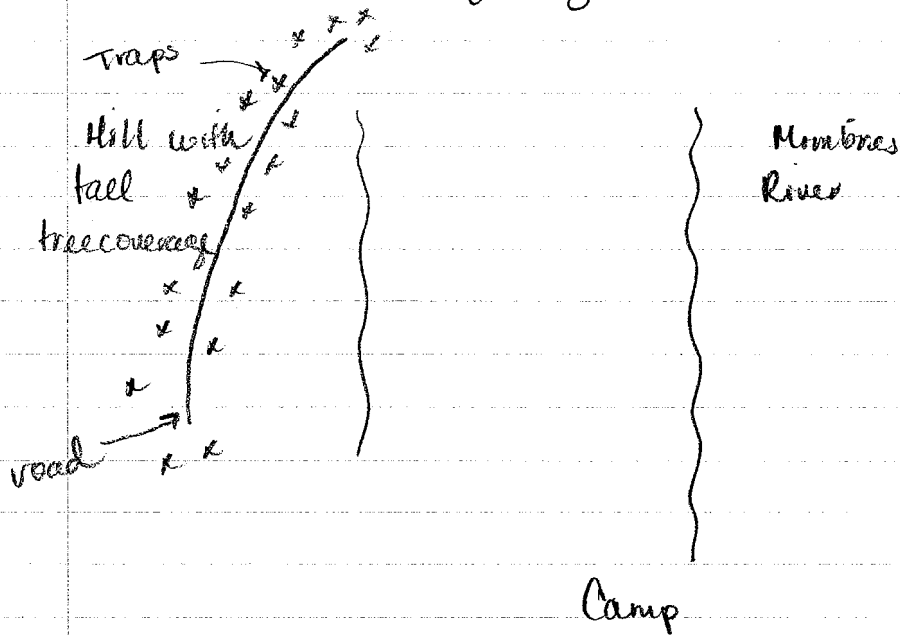 Traps
Hill with
tall
treecoverage
Mimbres
River
road
Camp